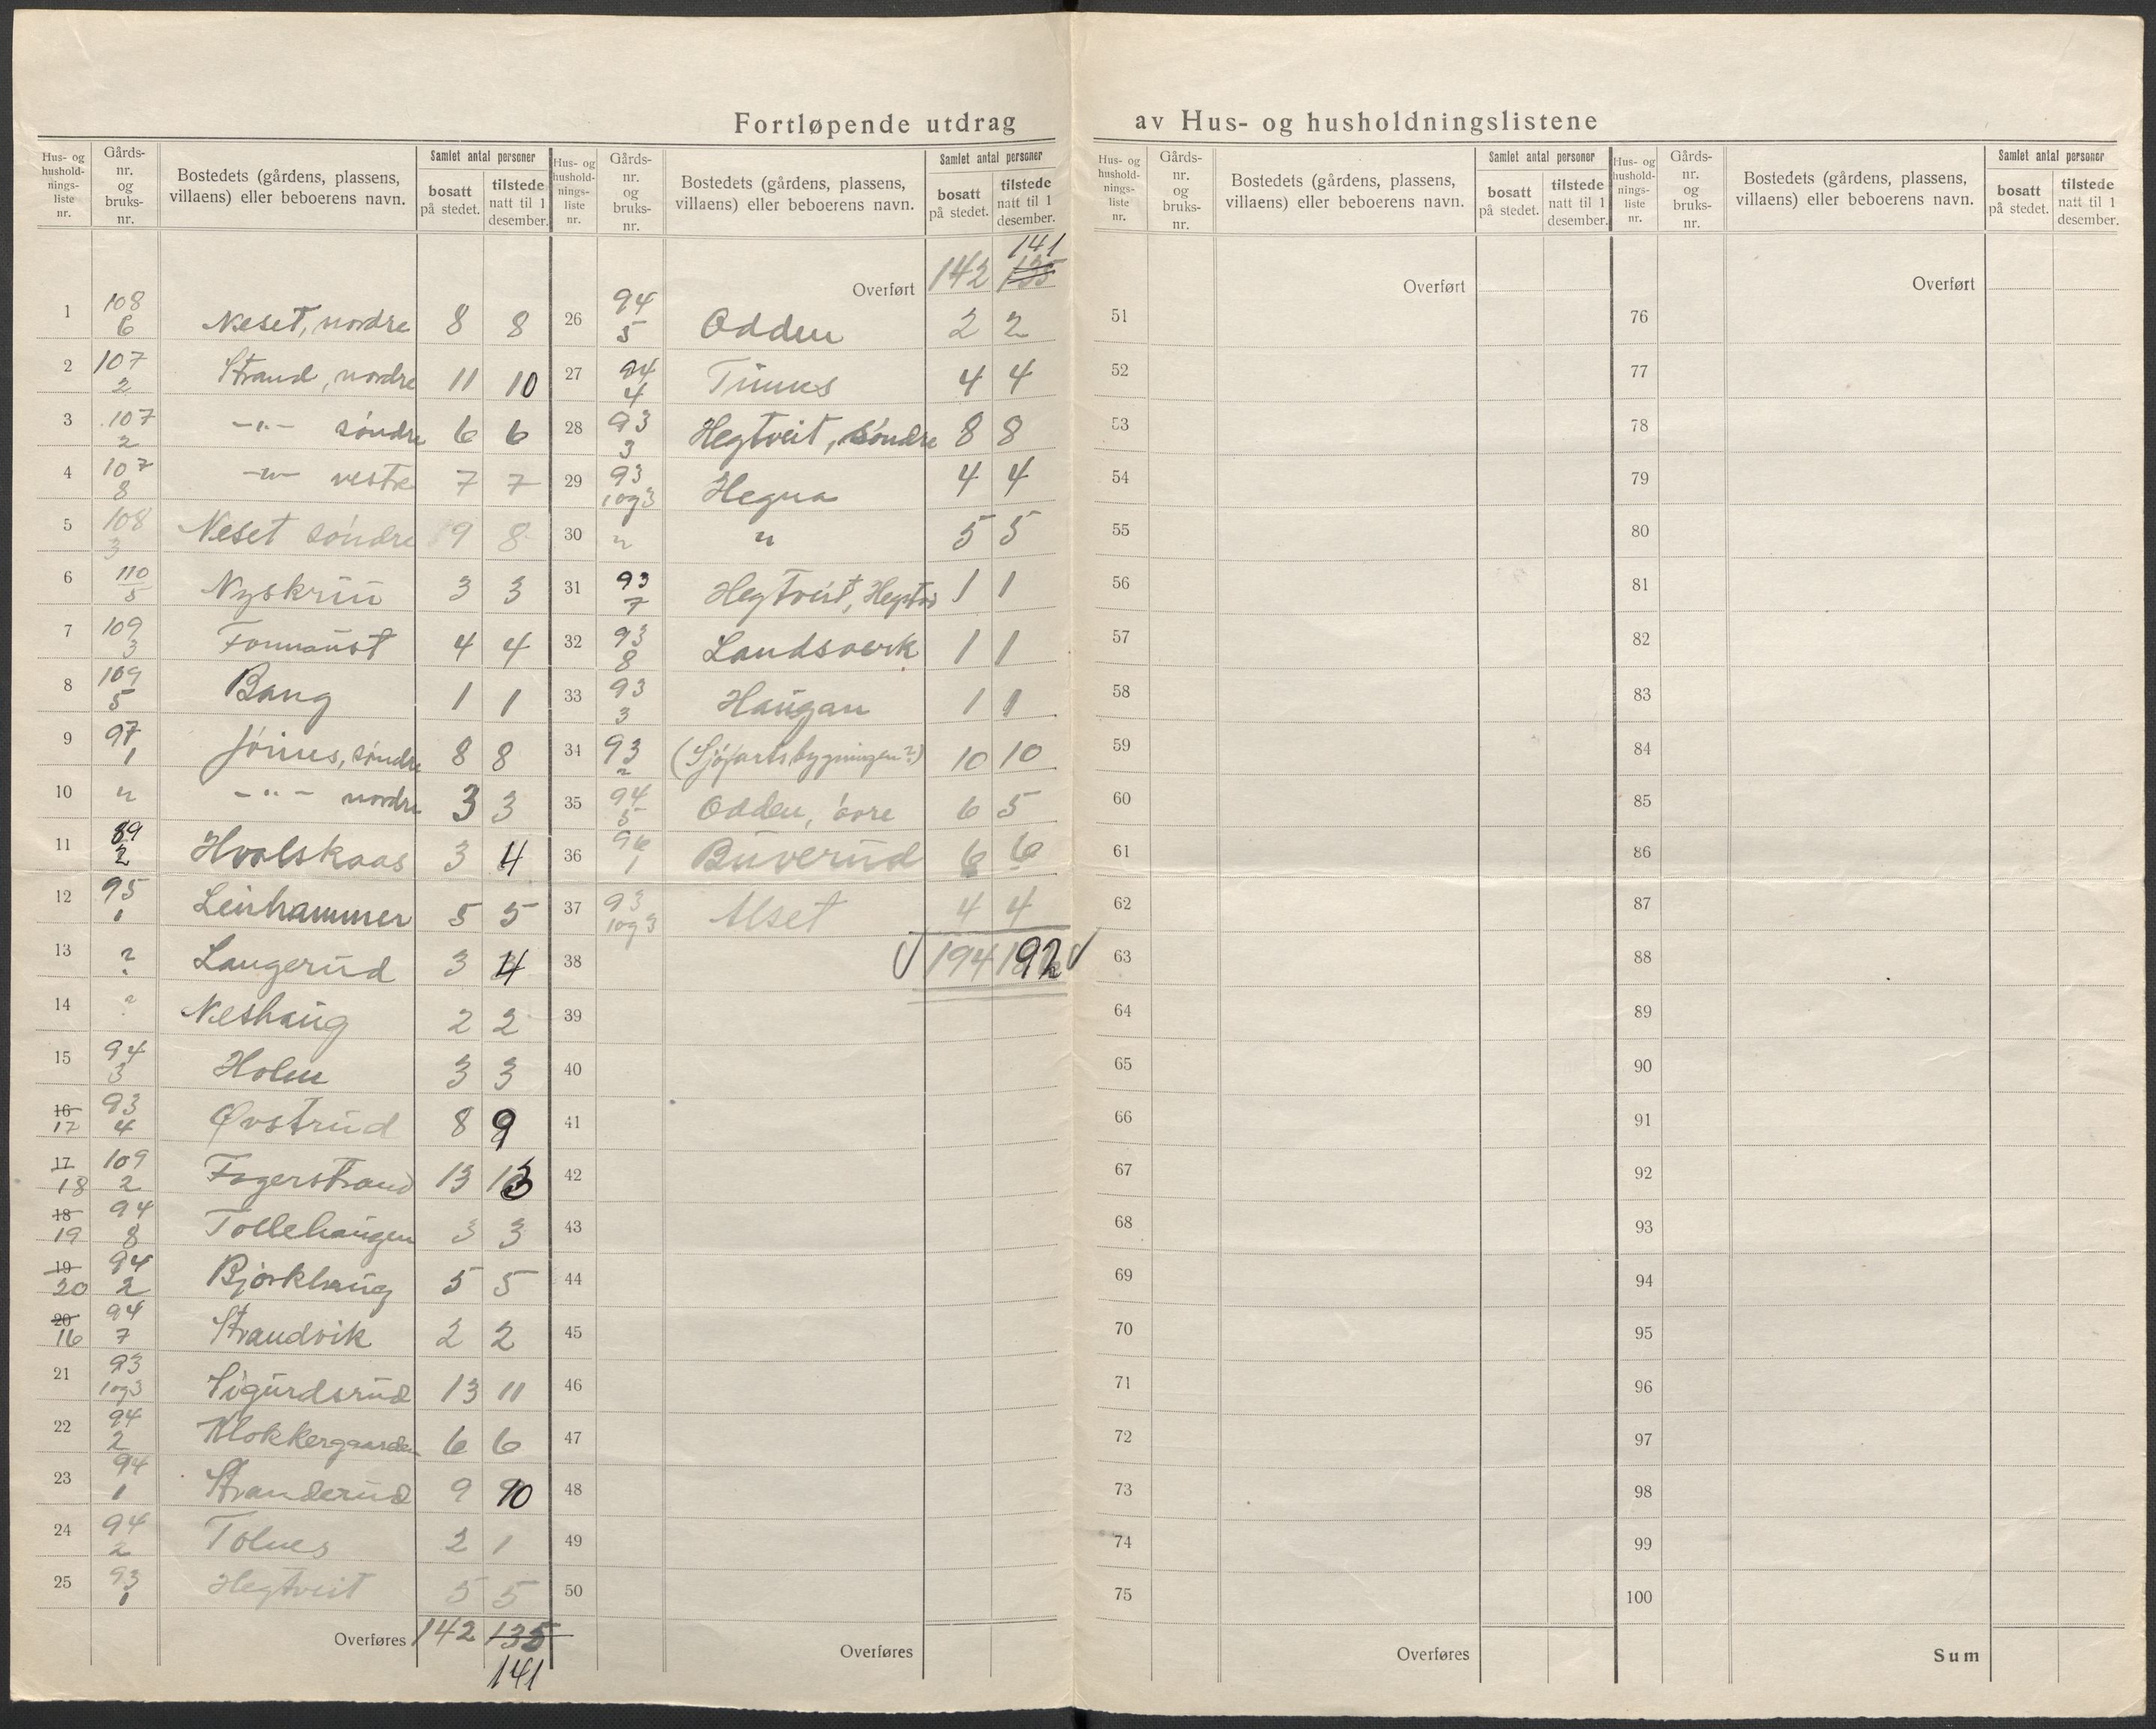 Fortløpende utdrag av Hus- og husholdningslistene
Hus- og hushold-nings-liste nr. | Gårds-nr. og bruks-nr. | Bostedets (gårdens, plassens, villaens) eller beboerens navn. | Samlet antal personer | bosatt på stedet. | tilstede natt til 1 desember.
1 | 108 6 | Neset, nordre | 8 | 8
2 | 107 2 | Strand, nordre | 11 | 10
3 | 107 2 | -"- søndre | 6 | 6
4 | 107 8 | -"- vestre | 7 | 7
5 | 108 3 | Neset søndre | 9 | 8
6 | 110 5 | Nyskrüü | 3 | 3
7 | 109 3 | Fonnaust | 4 | 4
8 | 109 5 | Bang | 1 | 1
9 | 97 1 | Jörnes, søndre | 8 | 8
10 | " | -"- nordre | 3 | 3
11 | 89 2 | Hvalskaas | 3 | 4
12 | 95 1 | Leirhammer | 5 | 5
13 | ? | Langerud | 3 | 4
14 | ? | Neshaug | 2 | 2
15 | 94 3 | Holm | 3 | 3
16 17 | 93 4 | Øvstrud | 8 | 9
17 18 | 109 2 | Fagerstrand | 13 | 13
18 19 | 94 8 | Tollehaugen | 3 | 3
19 20 | 94 2 | Bjørkhaug | 5 | 5
20 16 | 94 7 | Strandvik | 2 | 2
21 | 93 1og3 | Sigurdsrud | 13 | 11
22 | 94 2 | Klokkergaarden | 6 | 6
23 | 94 1 | Stranderud | 9 | 10
24 | 94 2 | Tolnes | 2 | 1
25 | 93 1 | Hegtveit | 5 | 5
Overføres | 142 | 135
141
Hus- og hushold-nings-liste nr. | Gårds-nr. og bruks-nr. | Bostedets (gårdens, plassens, villaens) eller beboerens navn. | Samlet antal personer | bosatt på stedet. | tilstede natt til 1 desember.
141
Overført | 142 | 135
26 | 94 5 | Odden | 2 | 2
27 | 94 4 | 4 | 4
28 | 93 3 | Hegtveit, søndre | 8 | 8
29 | 93 1og3 | Hegna | 4 | 4
30 | " | " | 5 | 5
31 | 93 7 | Hegtveit, | 1 | 1
32 | 93 8 | Landsverk | 1 | 1
33 | 93 3 | Haugan | 1 | 1
34 | 93 2 | (Sjöfartsbygningen?) | 10 | 10
35 | 94 5 | Odden, övre | 6 | 5
36 | 96 1 | Buverud | 6 | 6
37 | 93 1og3 | Alset | 4 | 4
38 | 194 | 192
39
40
41
42
43
44
45
46
47
48
49
50
Overføres
Hus- og hushold-nings-liste nr. | Gårds-nr. og bruks-nr. | Bostedets (gårdens, plassens, villaens) eller beboerens navn. | Samlet antal personer | bosatt på stedet. | tilstede natt til 1 desember.
Overført
51
52
53
54
55
56
57
58
59
60
61
62
63
64
65
66
67
68
69
70
71
72
73
74
75
Overføres
Hus- og hushold-nings-liste nr. | Gårds-nr. og bruks-nr. | Bostedets (gårdens, plassens, villaens) eller beboerens navn. | Samlet antal personer | bosatt på stedet. | tilstede natt til 1 desember.
Overført
76
77
78
79
80
81
82
83
84
85
86
87
88
89
90
91
92
93
94
95
96
97
98
99
100
Sum